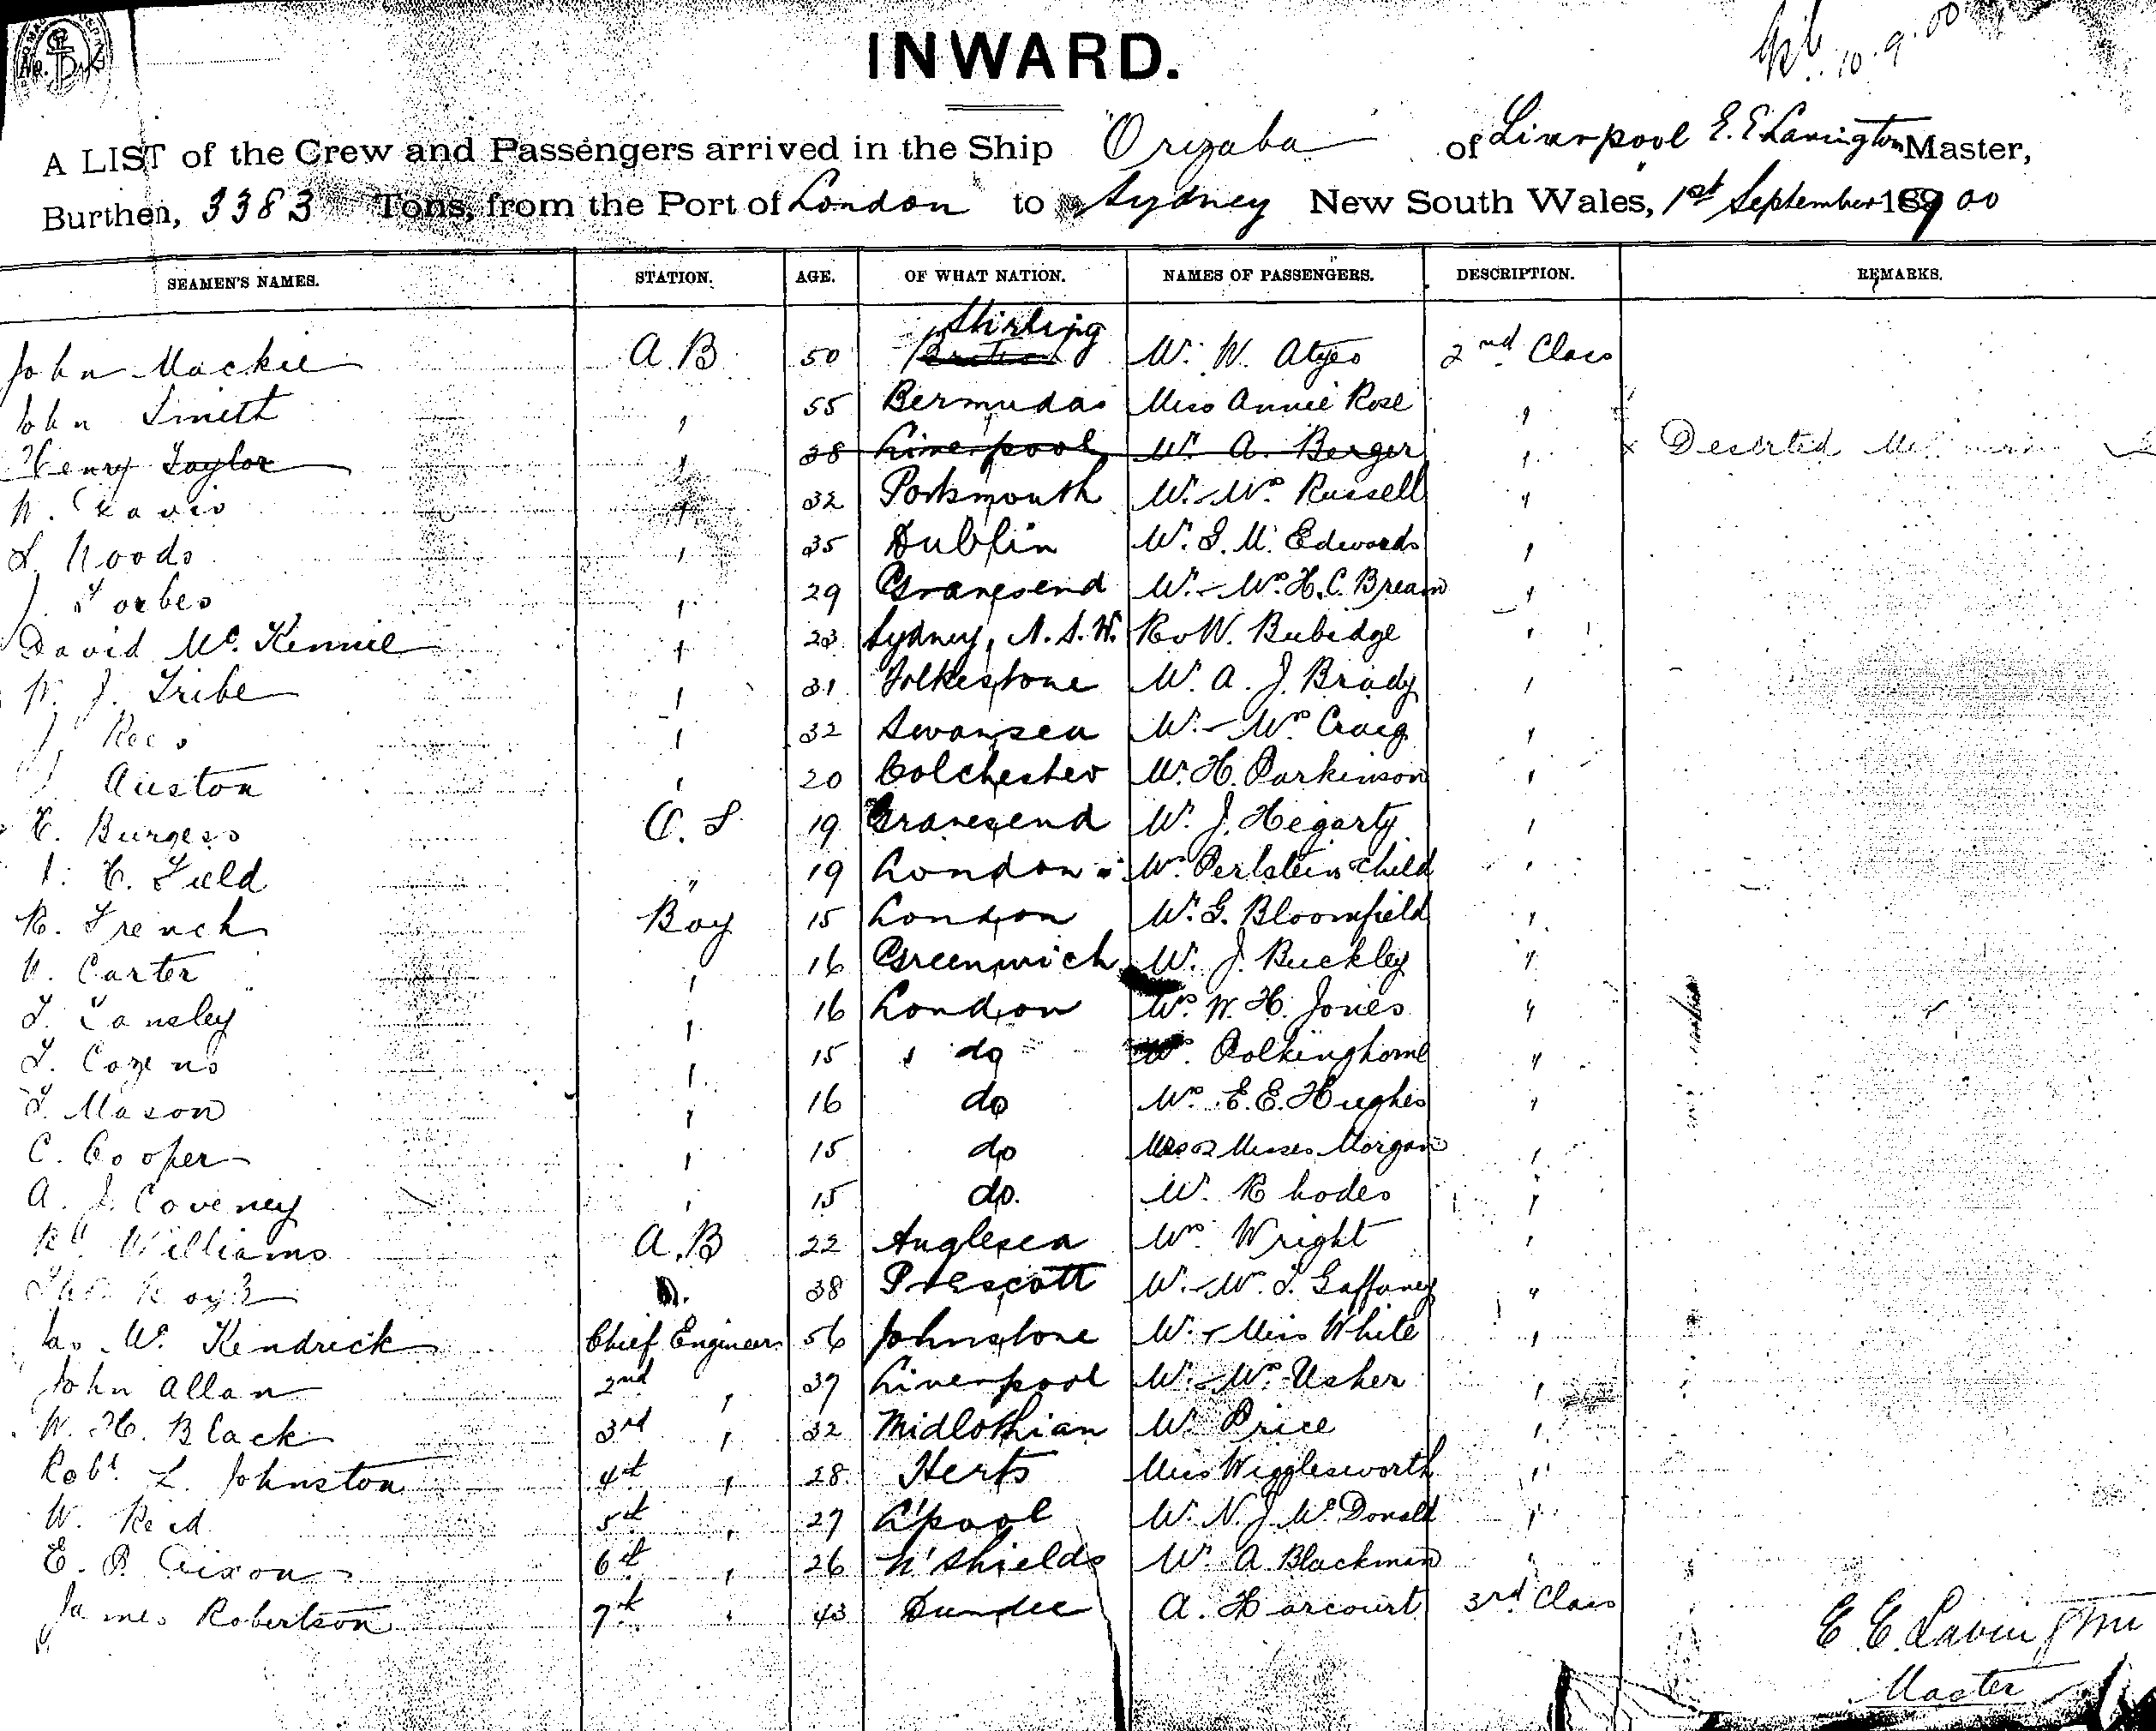 INWARD.
10.9.00
A LIST of the Crew and Passengers arrived in the Ship Orizaba of Liverpool E. E Lavington Master,
Burthen, 3383 Tons, from the Port of London to Sydney New South Wales, 1st September 1900
SEAMEN'S NAMES. STATION. AGE. OF WHAT NATION. NAMES OF PASSENGERS. DESCRIPTION. REMARKS.
Stirling
John Mackie A.B 50 Mr. W. Atyeo 2nd Class
John Smith " 55 Bermudas Miss Annie Rose "
Henry Taylor " 38 Liverpool Mr. A. Berger " x Deserted
W. Davis " 32 Portsmouth Mr. & Mrs. Russell "
Woods " 35 Dublin Mr. S. M. Edwards "
J. Forbes " 29 Gravesend Mr. & Mrs. H. C. Bream "
David Mc. Kennie " 23 Sydney, N.S.W. Rev W. Bubidge "
W. J. Tribe " 31 Folkestone Mr. A. J. Brady "
J. Rees " 32 Swansea Mr. & Mrs. Craig "
J. Auston " 20 Colchester Mr. H. Parkinson "
C. Burgess O.S 19 Gravesend Mr. J. Hegarty "
C. Field " 19 London Mrs. Perlstein & child "
R. French Boy 15 London Mr. G. Bloomfield "
Carter " 16 Greenwich Mr. J. Buckley "
Tansley " 16 London Mrs. W. H. Jones "
Cozens " 15 do Polkinghorne "
Mason " 16 do Mrs. E. E. Hughes "
C. Cooper " 15 do Misses Morgan "
A. J. Coveney " 15 do. Mr. Rhodes "
Williams A.B 22 Anglesea Mrs. Wright "
38 Prescott Mr. & Mrs. Gaffaney "
Jas. Mc. Kendrick Chief Engineer 56 Johnstone Mr. & Miss White "
John Allan 2nd " 37 Liverpool Mr. & Mrs. Usher "
W. H. Black 3rd " 32 Midlothian Mr. Price "
Robt. L. Johnston 4th " 28 Herts Miss Wigglesworth "
W. Reid 5th " 27 L'pool Mr. N. J. McDonald "
E. P. Dixon 6th " 26 N'Shields Mr. A Blackman "
James Robertson 7th " 43 Dundee A. Harcourt 3rd Class
E. E. Lavington
Master